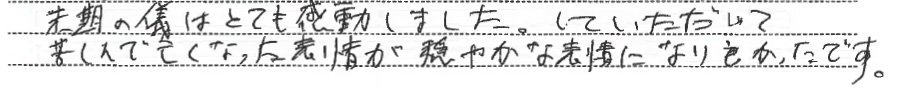 末期の儀はとても感動しました。していただいて
苦しんで亡くなった表情が穏やかな表情になり良かったです。